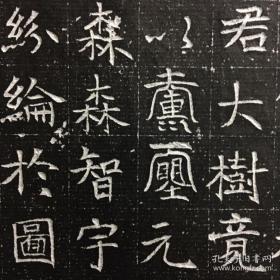 君大樹音
以元
森森智宇
紛綸於圖
孔夫子旧书网